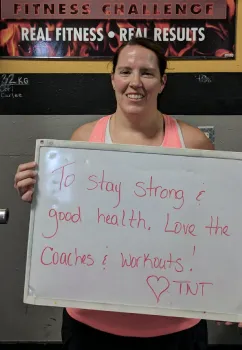 FITNESS CHALLENGE
REAL FITNESS • REAL RESULTS
32 KG
To stay strong &
good health. Love the
Coaches & workouts!
♡ TNT